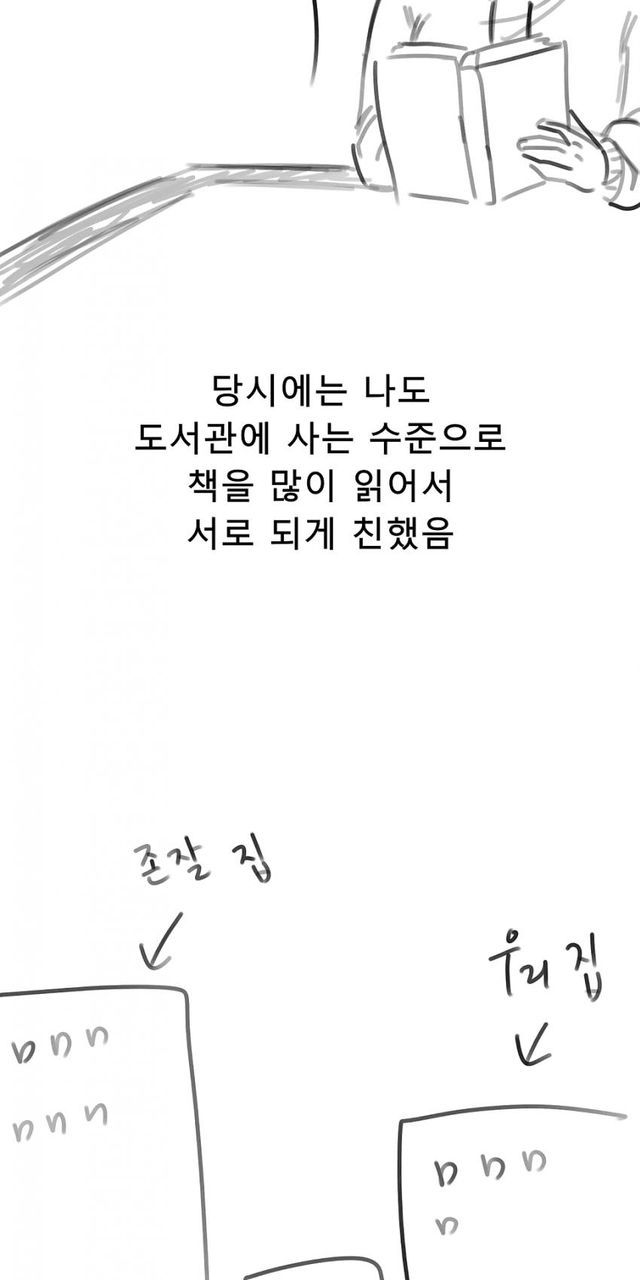 당시에는 나도
도서관에 사는 수준으로
책을 많이 읽어서
서로 되게 친했음
존잘 집
우리 집